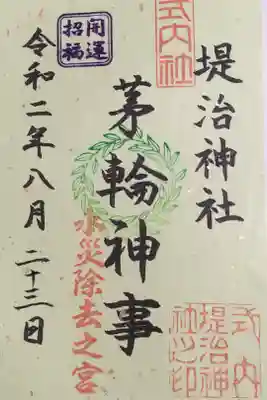 式内社
堤治神社
開運
招福
茅輪神事
水災除去之宮
令和二年八月二十三日
式内
堤治神
社之印